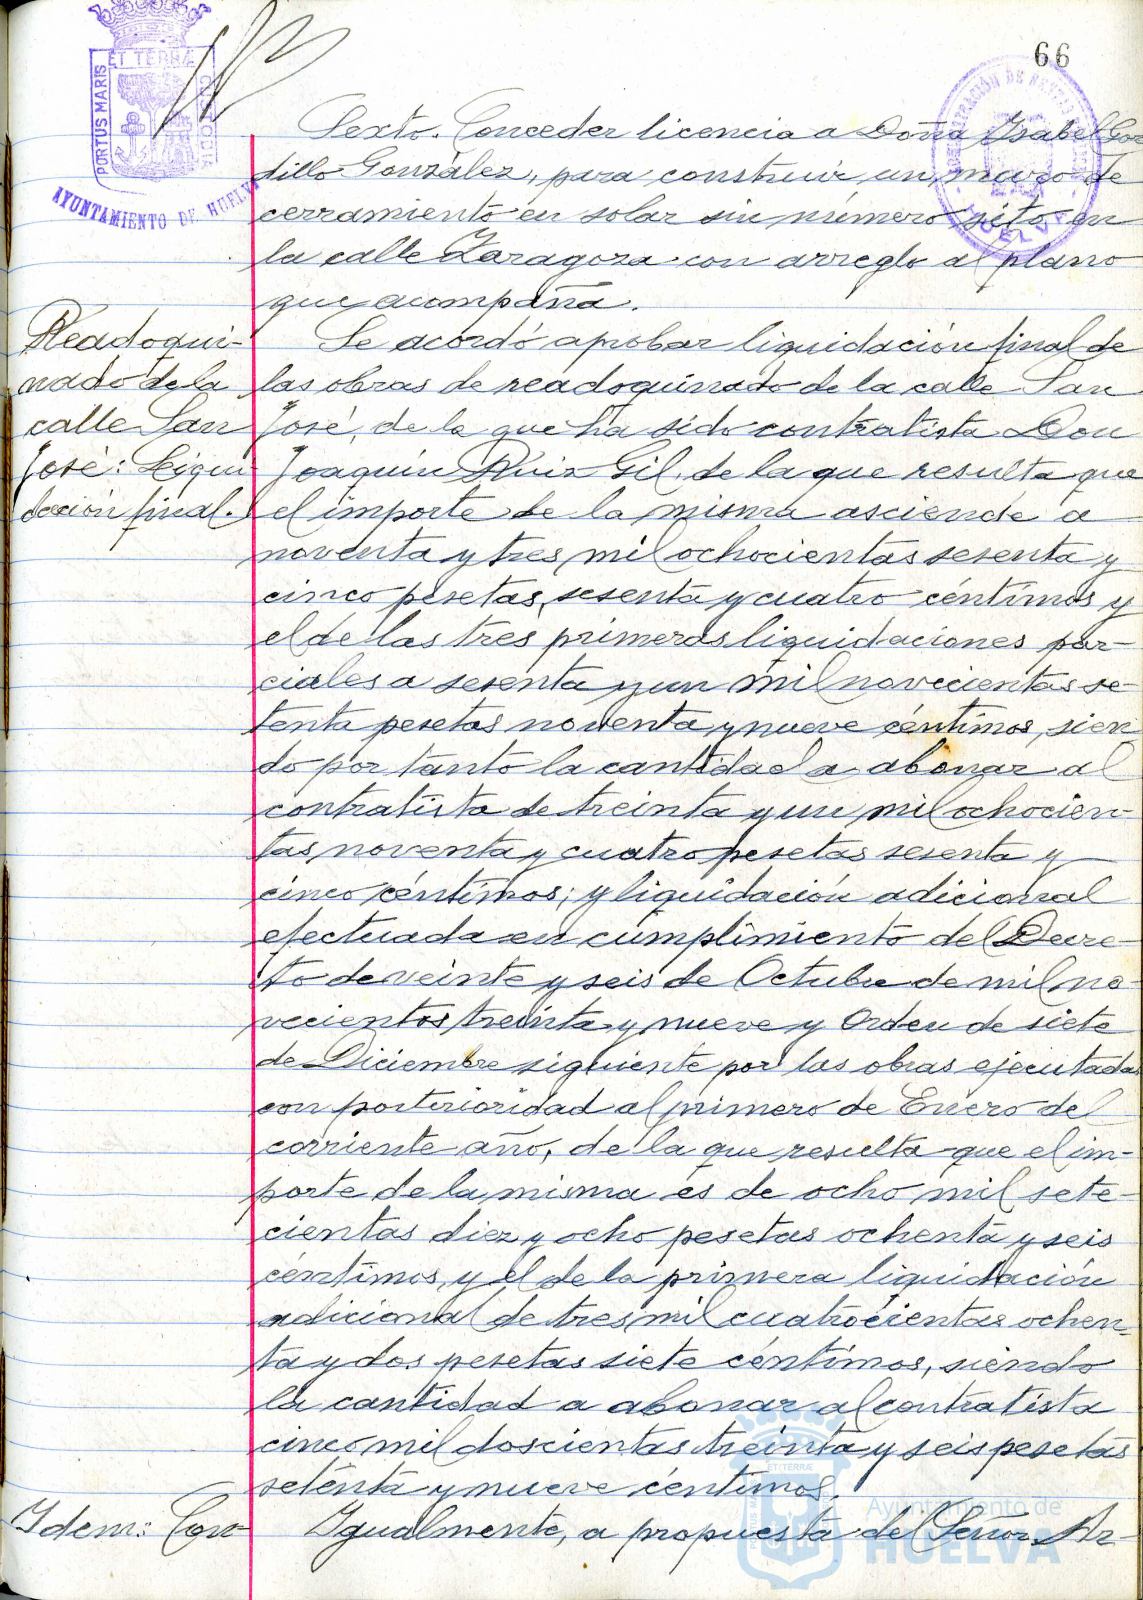 66
PORTUS MARIS
ET TERRÆ
CUSTODIA
AYUNTAMIENTO DE HUELVA
HUELVA
Sexto. Conceder licencia a Doña Isabel Gor
dillo González, para construir un muro de
cerramiento en solar sin número sito en
la calle Zaragoza con arreglo al plano
que acompaña.
Readoqui-
nado de la
calle San
José: Liqui
dación final.
Se acordó aprobar liquidación final de
las obras de readoquinado de la calle San
José, de la que ha sido contratista Don
Joaquín Ruiz Gil, de la que resulta que
el importe de la misma asciende a
noventa y tres mil ochocientas sesenta y
cinco pesetas, sesenta y cuatro céntimos y
el de las tres primeras liquidaciones par-
ciales a sesenta y un mil novecientas se-
tenta pesetas noventa y nueve céntimos, sien
do por tanto la cantidad a abonar al
contratista de treinta y un mil ochocien-
tas noventa y cuatro pesetas sesenta y
cinco céntimos; y liquidación adicional
efectuada en cumplimiento del Decre-
to de veinte y seis de Octubre de mil no-
vecientos treinta y nueve y Orden de siete
de Diciembre siguiente por las obras ejecutadas
con posterioridad al primero de Enero del
corriente año, de la que resulta que el im-
porte de la misma es de ocho mil sete-
cientas diez y ocho pesetas ochenta y seis
céntimos, y el de la primera liquidación
adicional de tres mil cuatrocientas ochen-
ta y dos pesetas siete céntimos, siendo
la cantidad a abonar al contratista
cinco mil doscientas treinta y seis pesetas
setenta y nueve céntimos.
Idem: Con-
Igualmente, a propuesta del Señor Ar-
Ayuntamiento de
HUELVA